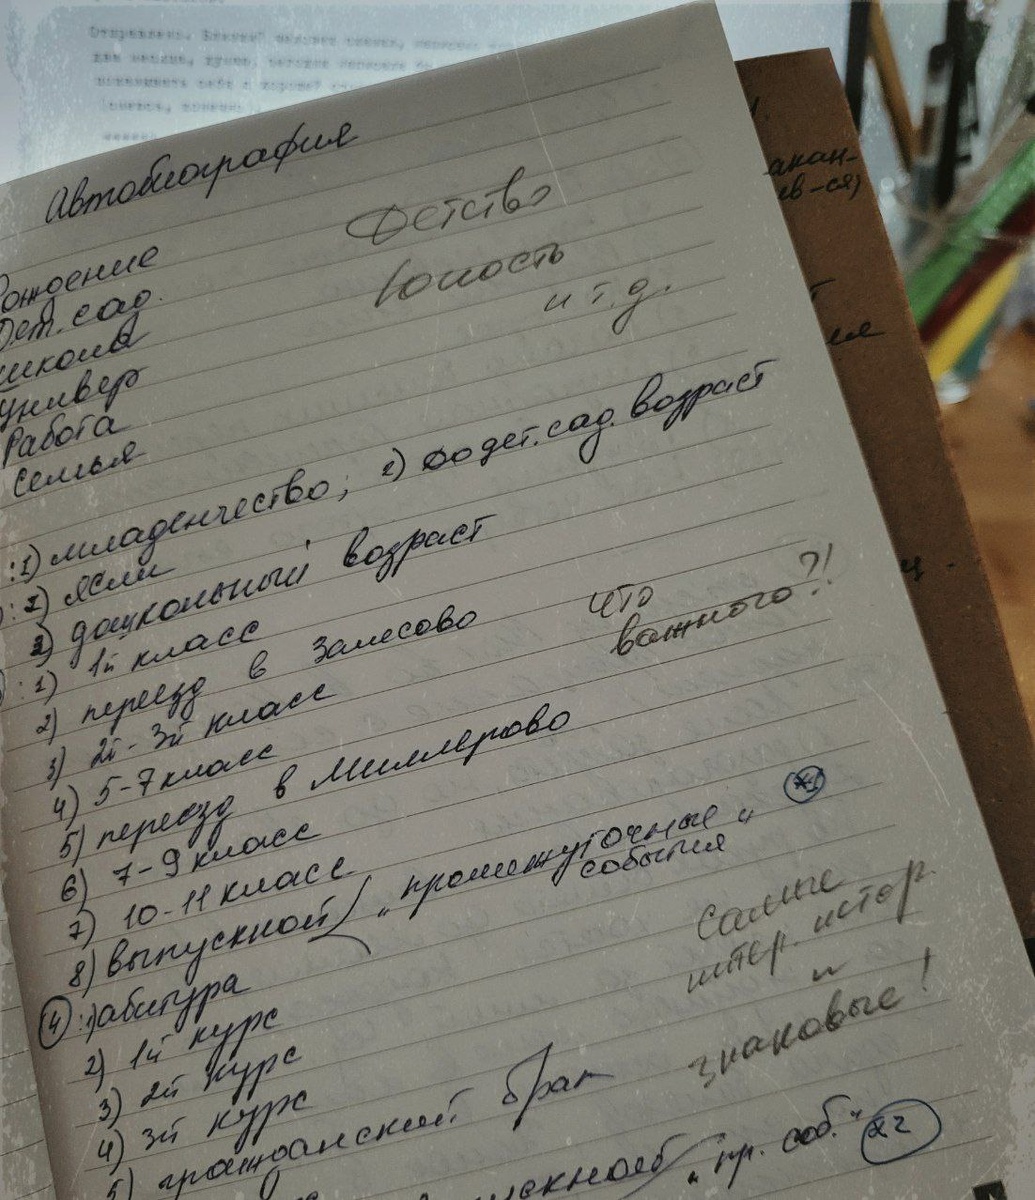 Автобиография
Рождение
Дет. сад.
школа
универ
Работа
семья
Детство
Юность
и т.д.
:1) младенчество; 2) до дет.сад. возраст
:2) ясли
3) дошкольный возраст
:1) 1й класс
2) переезд в Залесово
3) 2й - 3й класс
что
важного?!
4) 5-7 класс
5) переезд в Миллерово
6) 7-9 класс
7) 10-11 класс
8) выпускной / „промежуточные“
события
4 :1) абитура
2) 1й курс
3) 2й курс
4) 3й курс
5) гражданский брак
самые
интер. истор.
и
знаковые!
„пр. соб.“